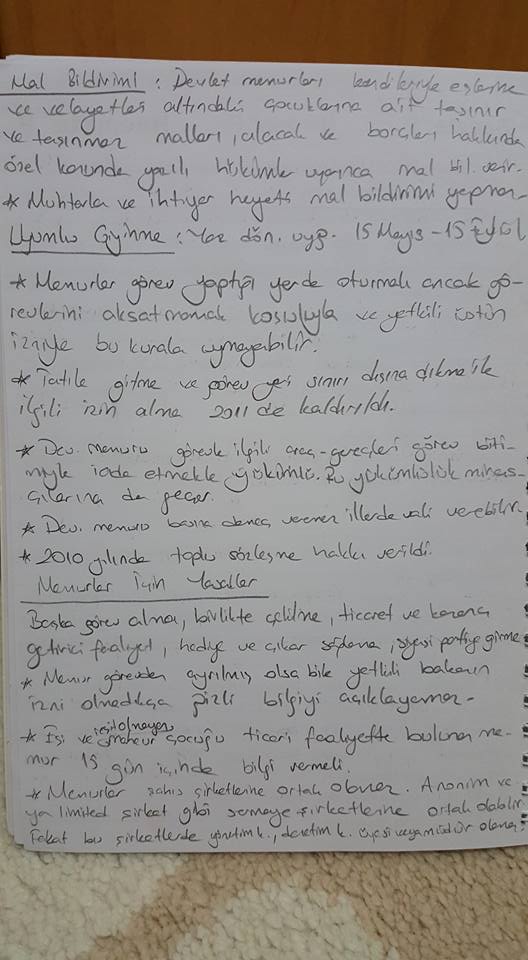 Mal Bildirimi : Devlet memurları kendileriyle eşlerine
ve velayetleri altındaki çocuklarına ait taşınır
ve taşınmaz malları, alacak ve borçları hakkında
özel kanunda yazılı hükümler uyarınca mal bil. verir.
* Muhtarla ve ihtiyar heyeti mal bildirimi yapmaz.
Uyumlu Giyinme : Yaz dön. uyg. 15 Mayıs - 15 Eylül
* Memurlar görev yaptığı yerde oturmalı ancak gö-
revlerini aksatmamak koşuluyla ve yetkili üstün
izniyle bu kurala uymayabilir.
* Tatile gitme ve görev yeri sınırı dışına çıkma ile
ilgili izin alma 2011 de kaldırıldı.
* Dev. memuru görevle ilgili araç-gereçleri görev biti-
miyle iade etmekle yükümlü. Bu yükümlülük miras-
çılarına da geçer.
* Dev. memuru basına demeç veremez illerde vali verebilir.
* 2010 yılında toplu sözleşme hakkı verildi.
Memurlar İçin Yasaklar
Başka görev alma, birlikte çekilme, ticaret ve kazanç
getirici faaliyet, hediye ve çıkar sağlama, siyasi partiye girme
* Memur görevden ayrılmış olsa bile yetkili bakanın
izni olmadıkça gizli bilgiyi açıklayamaz.
* Eşi ve reşit olmayan çocuğu ticari faaliyette bulunan me-
mur 15 gün içinde bilgi vermeli.
* Memurlar şahıs şirketlerine ortak olamaz. Anonim ve
ya limited şirket gibi sermaye şirketlerine ortak olabilir
Fakat bu şirketlerde yönetim k., denetim k. üyesi veya müdür olamaz